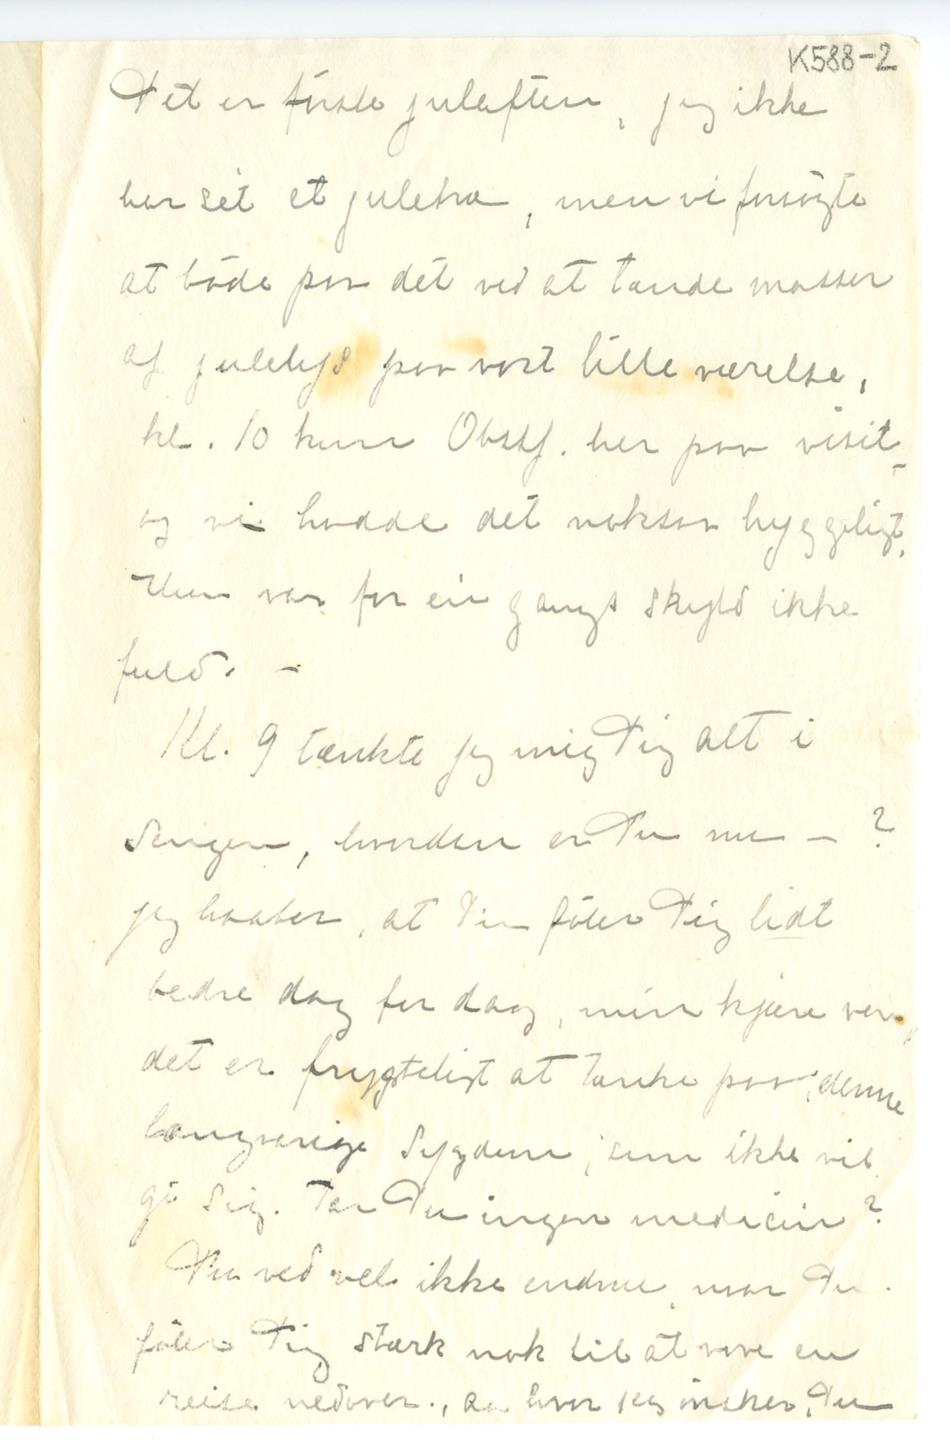 K588-2
Det er første juleaften, jeg ikke
har sét et juletræ, men vi forsøgte
at bøde paa dét ved at tænde masser
af julelys paa vort lille værelse,
kl. 10 kom Obstf. her paa visit
og vi hadde det noksaa hyggeligt,
Hun var for én gangs skyld ikke
fuld. –
Kl. 9 tænkte jeg mig Dig alt i
Sengen, hvordan er Du nu – ?
jeg haaber, at Du føler Dig lidt
bedre dag for dag, min kjære ven,
det er frygteligt at tænke paa, denne
langvarige Sygdom, som ikke vil
gi Sig. Tar Du ingen medicin?
Du ved vel ikke endnu, naar Du
føler Dig stærk nok til at vove en
reise nedover., aa hvor jeg ønsker, Du